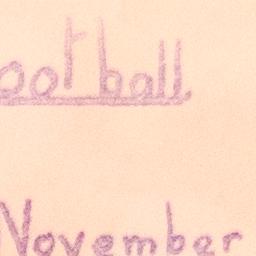 ootball
November